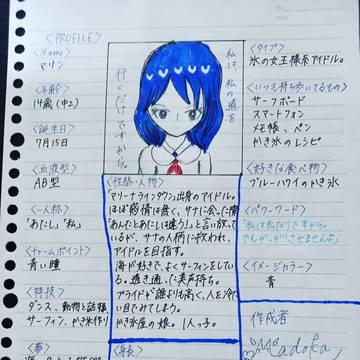 〈PROFILE〉
〈Name〉
マリン
〈年齢〉
14歳(中2)
〈誕生日〉
7月15日
〈血液型〉
AB型
〈一人称〉
「あたし」「私」
〈チャームポイント〉
青い瞳
〈特技〉
ダンス、動物と会話、
サーフィン、かき氷作り
〈夢〉
私は、私の道を
行くだけですから。
〈性格・人物〉
「マリーナラインタウン」出身のアイドル。
ほぼ感情は無く、サナに会った情
「あんたとあたしは違う!」と言い放って
いるが、サナの人柄に救われ、
アイドルを目指す。
海が好きで、よくサーフィンをしてい
る。透き通った美声持ち。
プライドが誰よりも高く、人を冷た
い目でみてしまう。
かき氷屋の娘。1人っ子。
〈身長〉
〈タイプ〉
氷の女王様系アイドル。
〈いつも持ち歩いてるもの〉
サーフボード
スマートフォン
メモ帳、ペン
かき氷のレシピ
〈好きな食べ物〉
ブルーハワイのかき氷
〈パワーワード〉
「私は私なりですから。
でもがっかりさせませんよ」
〈イメージカラー〉
青
作成者
Madoka